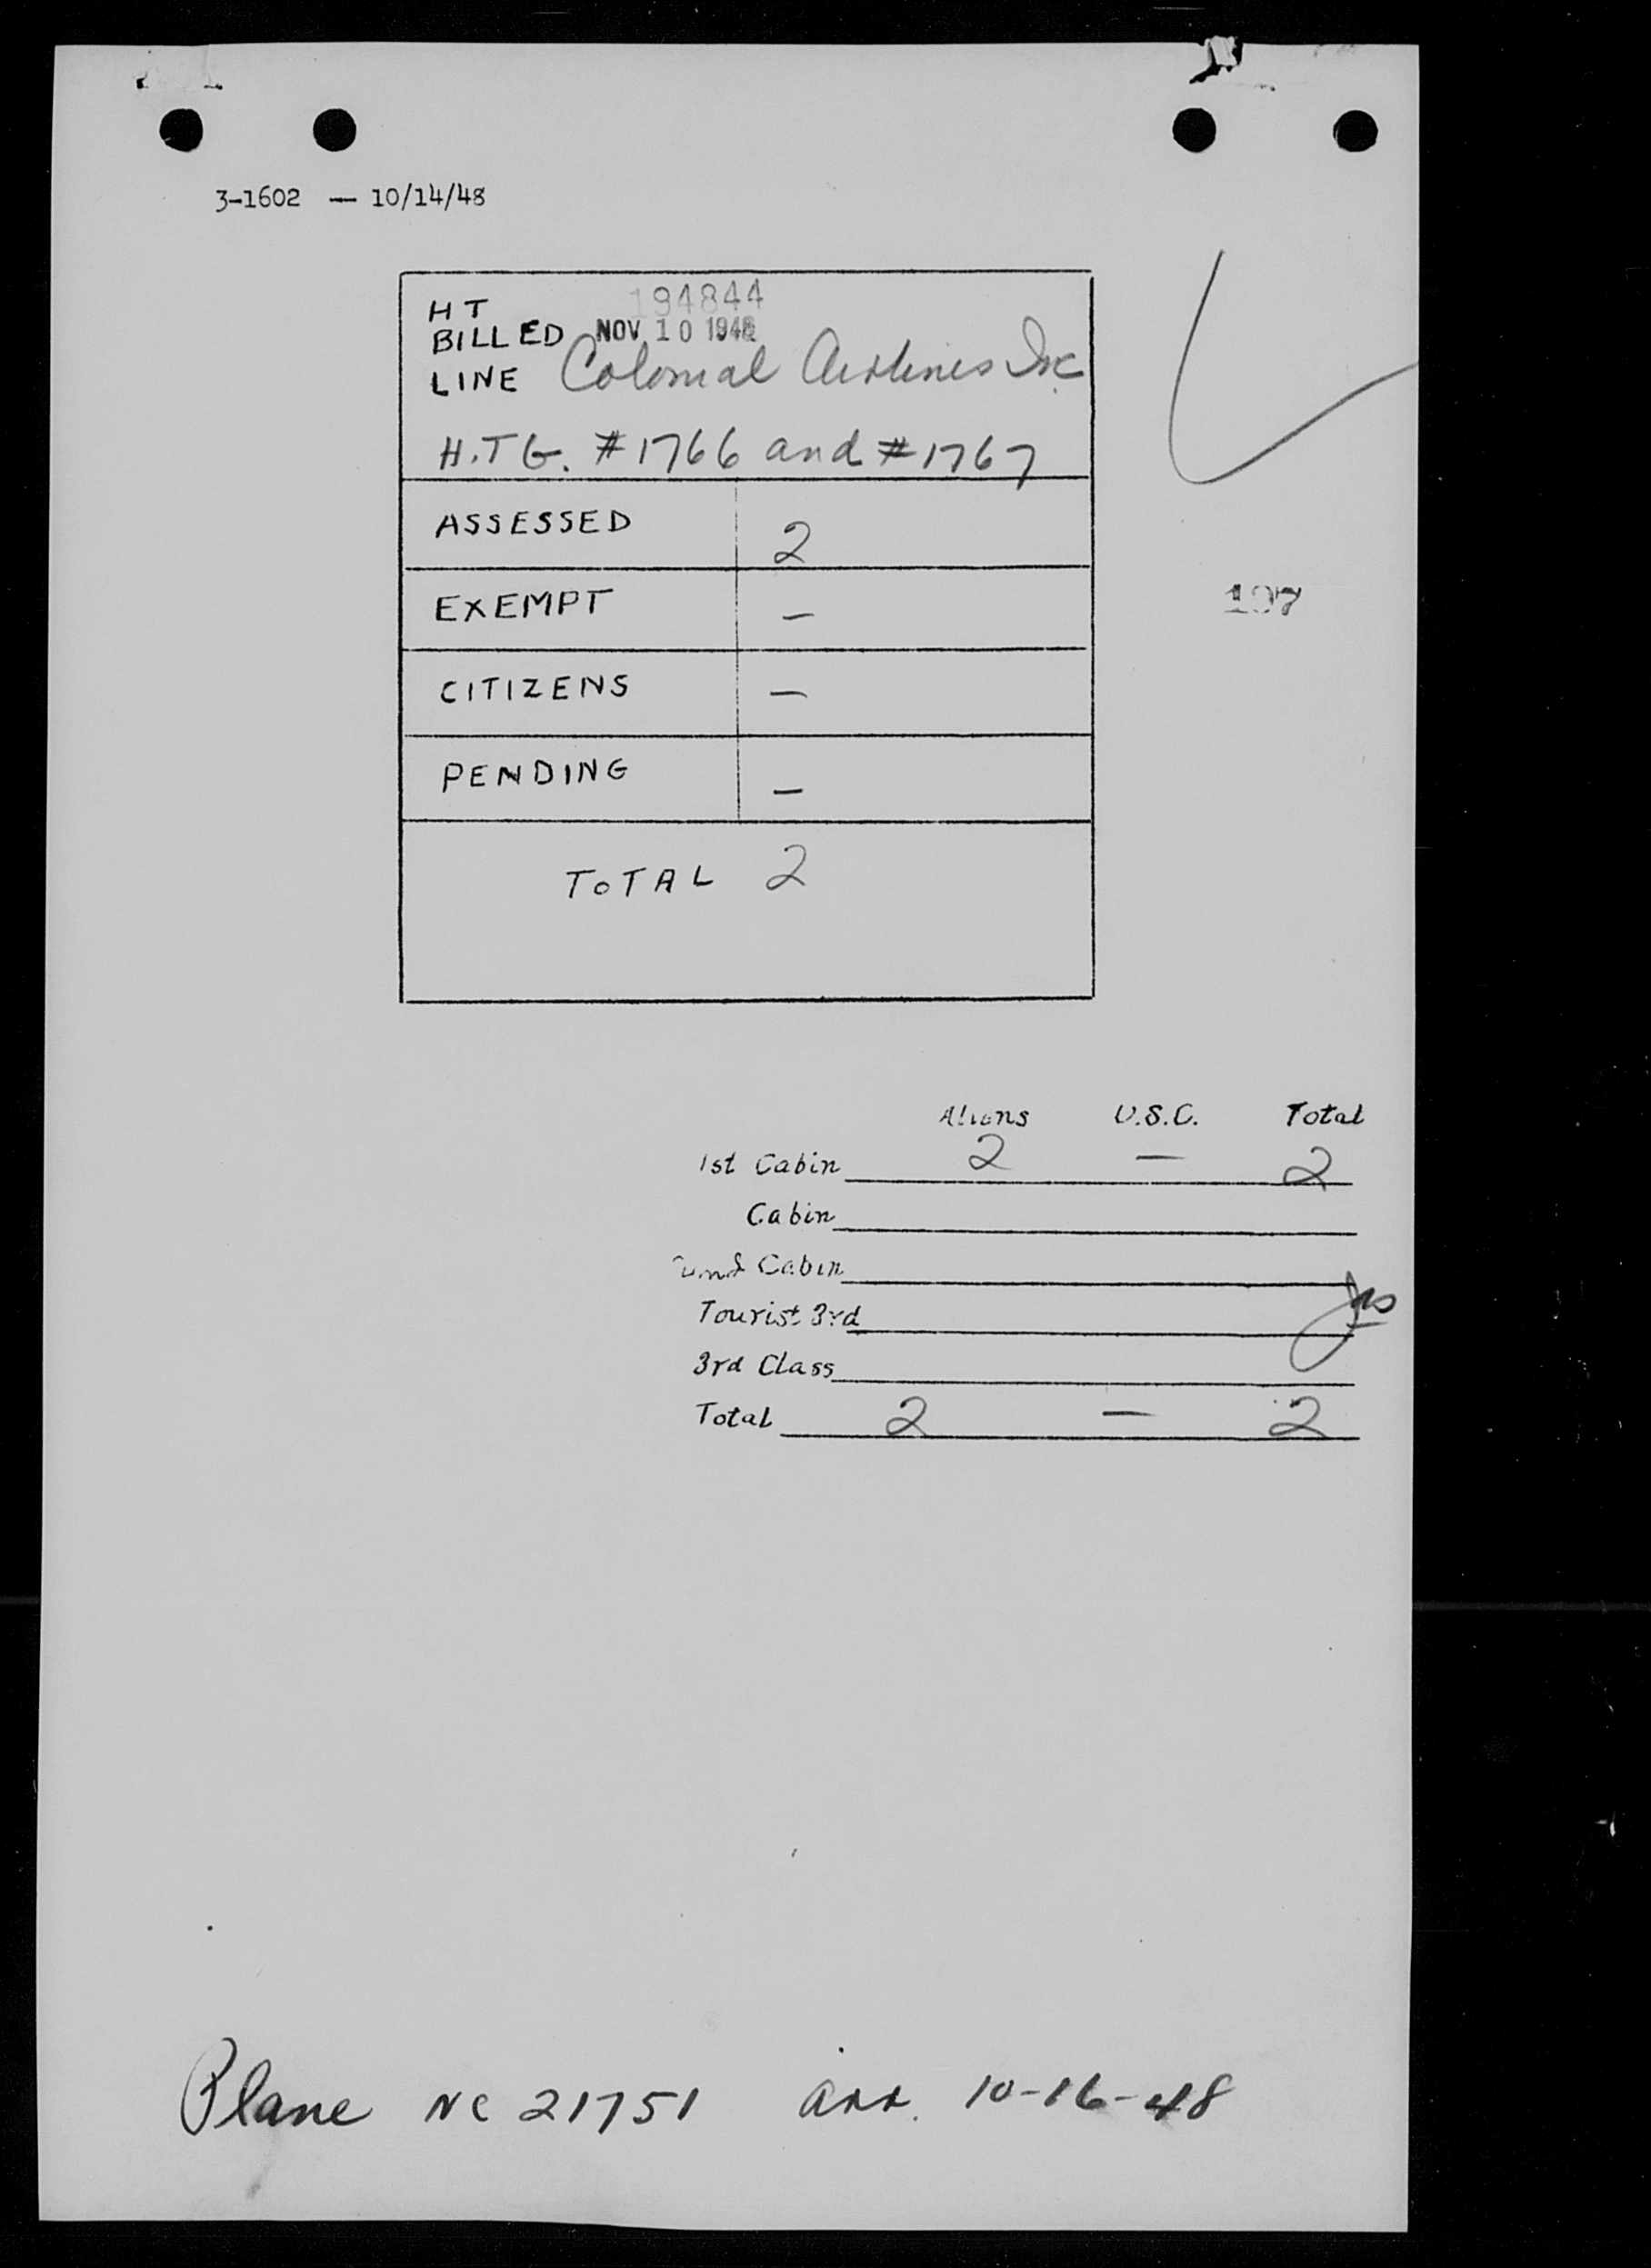 3-1602 — 10/14/48
194844
HT
BILLED NOV 10 1948
LINE Colonial Airlines Inc.
H.T G. #1766 and #1767
ASSESSED 2
EXEMPT —
CITIZENS —
PENDING —
TOTAL 2
197
Aliens U.S.C. Total
1st Cabin 2 — 2
Cabin
Cabin
Tourist 3rd
3rd Class
Total 2 — 2
Plane NC 21751 arr. 10-16-48